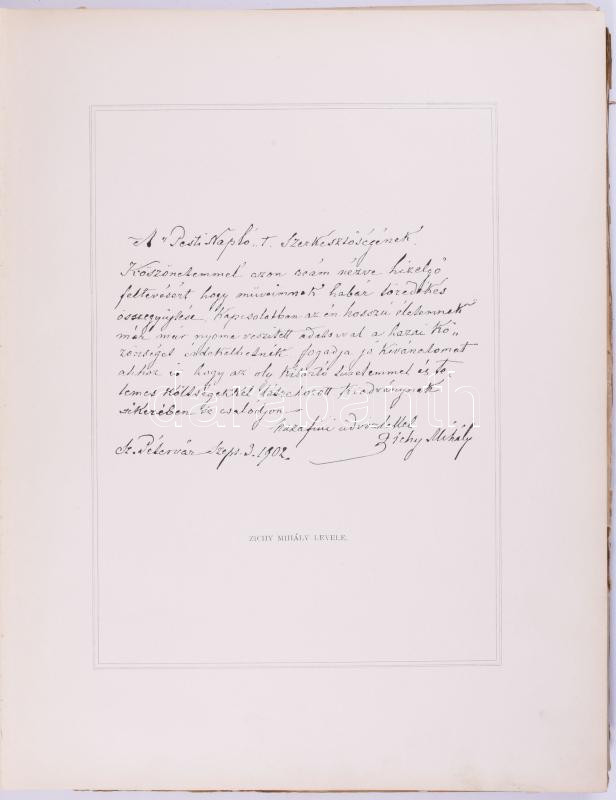 A "Pesti Napló" t. Szerkesztőségének.
Köszönetemmel azon reám nézve hizelgő
feltevésért hogy műveimnek habár töredékes
összegyűjtése, kapcsolatban az én hosszú életemnek
már már nyoma veszített adataival a hazai kö„
zönséget érdekelhetnék fogadja jó kivánatomat
ahhoz is hogy az oly kitartó türelemmel és te
temes költségekkel létrehozott kiadványnak
sikerében ne csalódjon
hazafiui üdvözlettel
Zichy Mihály
Sz. Pétervár Szept. 3. 1902.
ZICHY MIHÁLY LEVELE.
darabanth